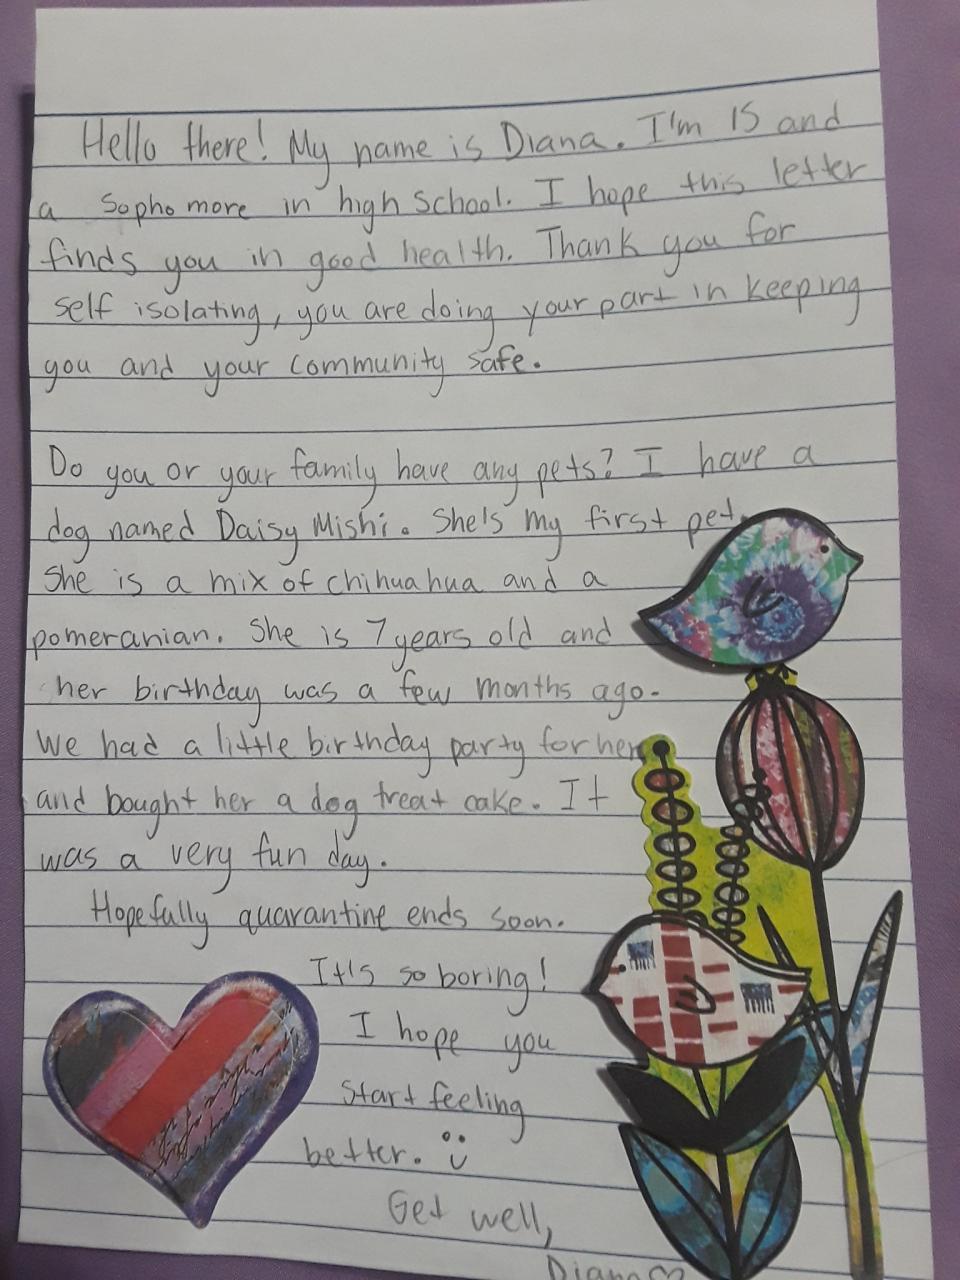 Hello there! My name is Diana. I'm 15 and
a sophomore in high school. I hope this letter
finds you in good health. Thank you for
self isolating, you are doing your part in keeping
you and your community safe.
Do you or your family have any pets? I have a
dog named Daisy Mishi. She's my first pet.
She is a mix of chihuahua and a
pomeranian. She is 7 years old and
her birthday was a few months ago.
We had a little birthday party for her
and bought her a dog treat cake. It
was a very fun day.
Hopefully quarantine ends soon.
It's so boring!
I hope you
start feeling
better. :)
Get well,
Diana ♡